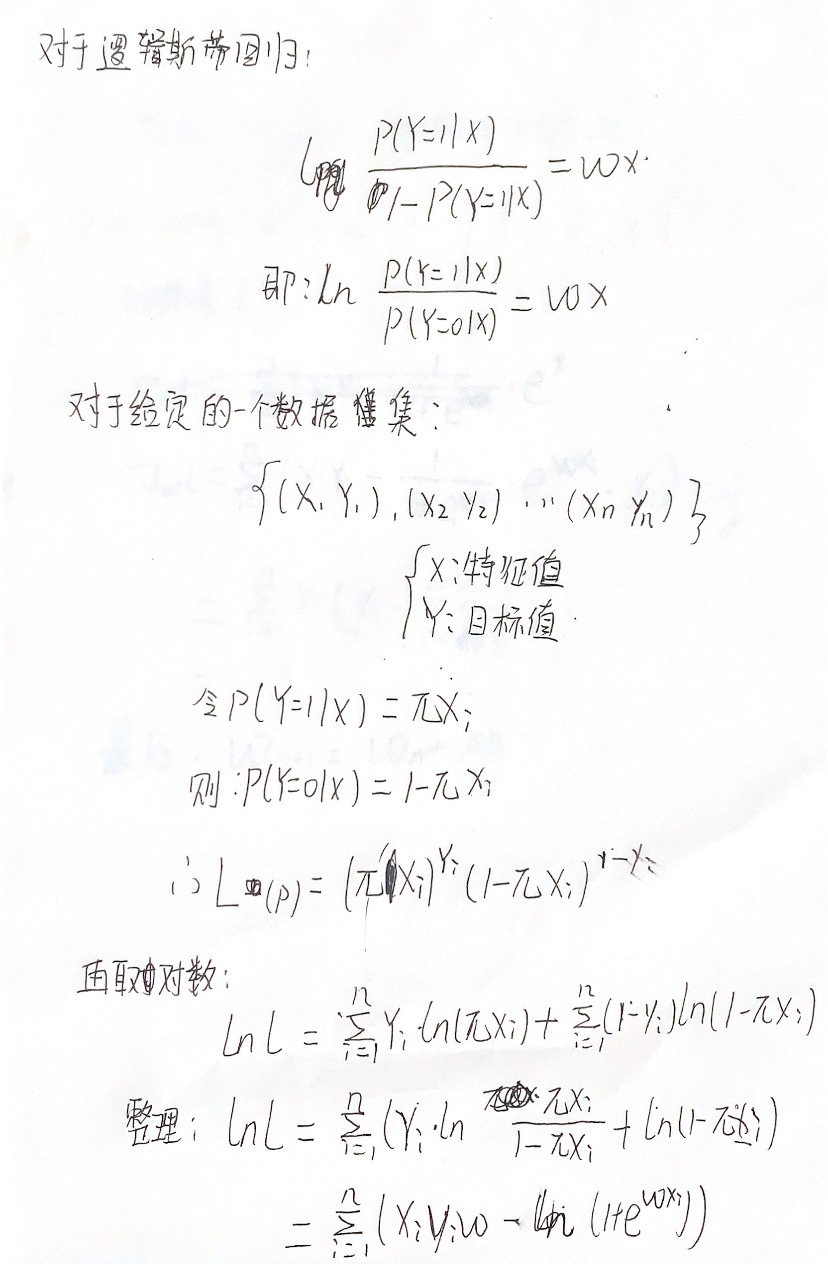 对于逻辑斯蒂回归:
ln P(Y=1|X) / 1-P(Y=1|X) = wx.
即: ln P(Y=1|X) / P(Y=0|X) = wx
对于给定的一个数据集:
{(X₁ Y₁), (X₂ Y₂) ... (Xn Yn)}
{ X: 特征值
Y: 目标值.
令P(Y=1|X) = πXi
则: P(Y=0|X) = 1-πXi
∴ L(P) = (πXi)^Yi (1-πXi)^1-Yi
再取对数:
ln L = Σ_{i=1}^{n} Yi·ln(πXi) + Σ_{i=1}^{n} (1-Yi)ln(1-πXi)
整理: ln L = Σ_{i=1}^{n} (Yi·ln πXi / 1-πXi + ln(1-πXi)
= Σ_{i=1}^{n} (XiYiw - ln(1+e^{wxi}))